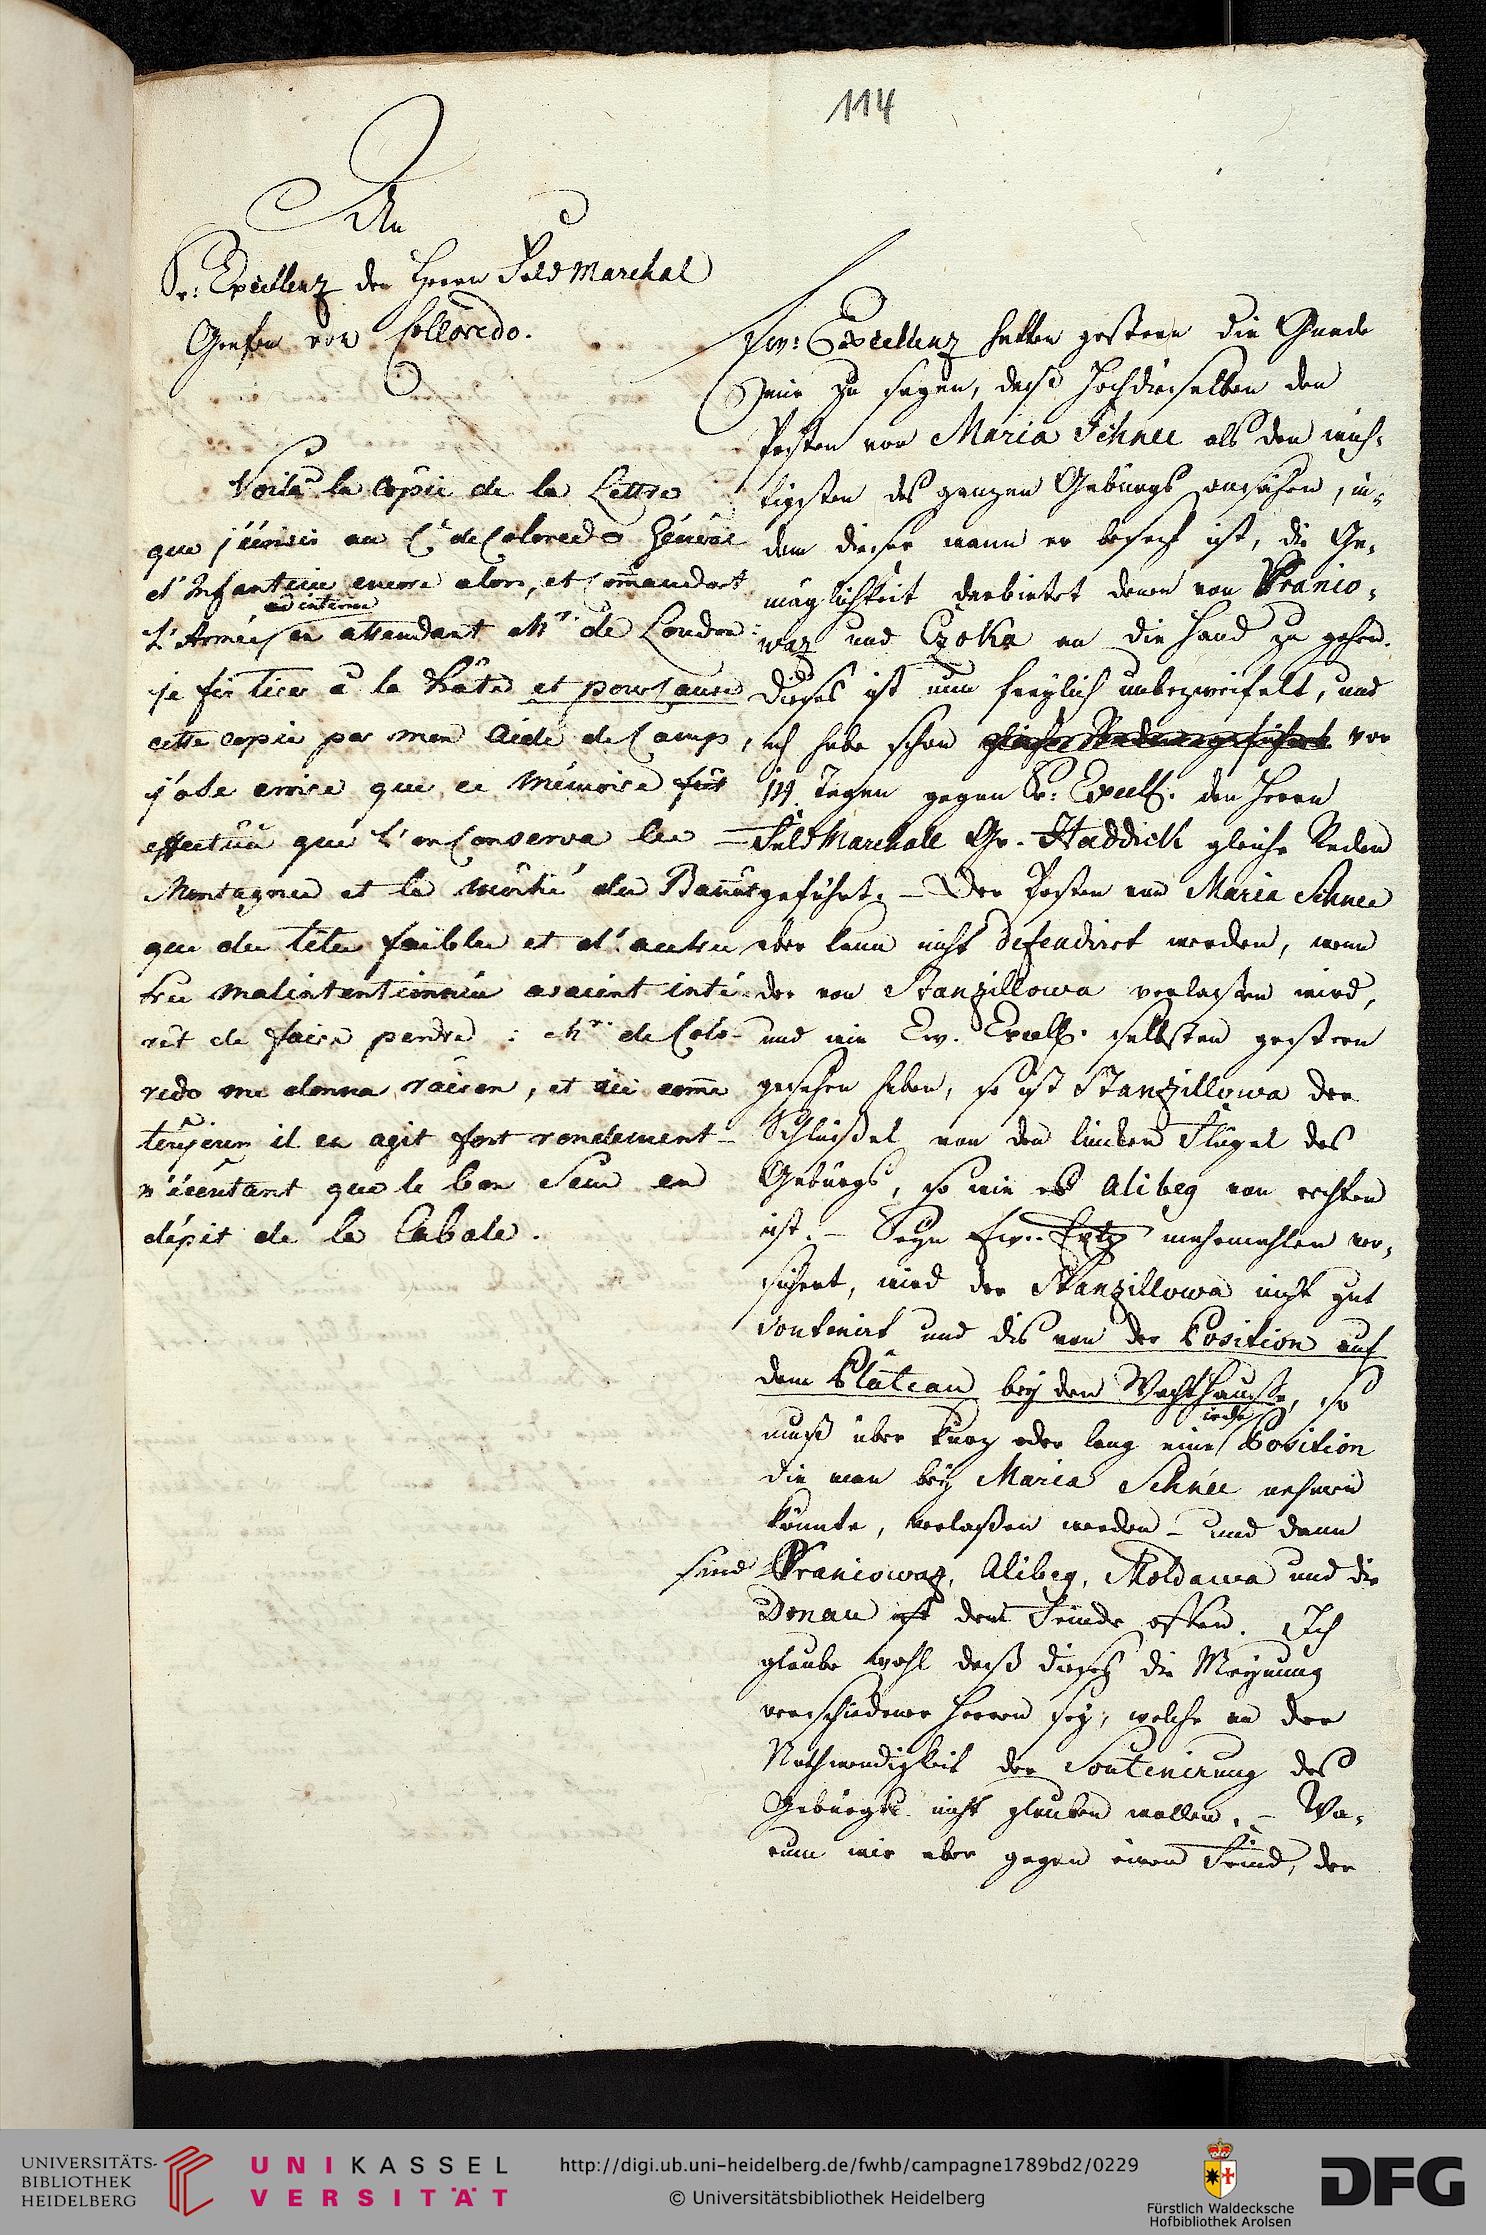 114
An
Sr: Excellenz den Herrn Feld Marchal
Grafen von Colloredo.
Voilà la Copie de la Lettre
que j'écrivis au C. de Coloredo Général
d'Infanterie encore alors, et Commandant
ad interim
l'Armée en attendant Mr. de Loudon:
je fis tirer à la hâte et pour cause
cette copie par mon Aide de Camp,
j'ose croire que ce Mémoire fut
effectua que l'on conserva les
Montagnes et la moitié du Bannat
que des têtes foibles et d'autres
très malintentionnées avaient inté-
rêt de faire perdre: Mr. de Colo-
redo me donna raison, et ici comme
toujours il en agit fort rondement
n'écoutant que le bon Sens en
dépit de la Cabale.
Ew: Excellenz hatten gestern die Gnade
mir zu sagen, daß Hochdieselben den
Posten von Maria Schnee als den wich-
tigsten des ganzen Gebürgs ansähen, in-
dem dieser wann er besezt ist, die Ge-
mäglichkeit darbietet denen von Vranio-
waz und Czoka an die Hand zu gehen.
Dieses ist nun freylich unbezweifelt, und
ich habe schon gleiche Reden geführt vor
14 Tagen gegen Sr: Excell. den Herrn
Feld Marchall Gr. Haddick gleiche Reden
geführt. – Der Posten von Maria Schnee
aber kann nicht defendiret werden, wenn
der von Stanzillowa verlassen wird,
und wie Ew. Excell. selbsten gestern
gesehen haben, so ist Stanzillowa der
Schlüßel von dem linken Flügel des
Gebürgs, so wie es Alibeg vom rechten
ist. – Seyn Ew: Extz mehrmahlen ver-
sichert, wird der Stanzillowa nicht gut
soutenirt und dis von der Position auf
dem Plateau bey dem Wachthauße, so
jede
muß über kurz oder lang eine Position
die man bey Maria Schnee nehmen
könnte, verlaßen werden – und dann
sind Vraniowaz, Alibeg, Moldawa und die
Donau ist dem Feinde offen. Ich
glaube wohl daß dieses die Meynung
verschiedener Herren sey, welche an der
Nothwendigkeit der Soutenirung des
Gebürgs nicht glauben wollen. – Wa-
rum wir aber gegen einen Feind, der
UNIVERSITÄTS-
BIBLIOTHEK
HEIDELBERG
UNIKASSEL
VERSITÄT
http://digi.ub.uni-heidelberg.de/fwhb/campagne1789bd2/0229
© Universitätsbibliothek Heidelberg
Fürstlich Waldecksche
Hofbibliothek Arolsen
DFG